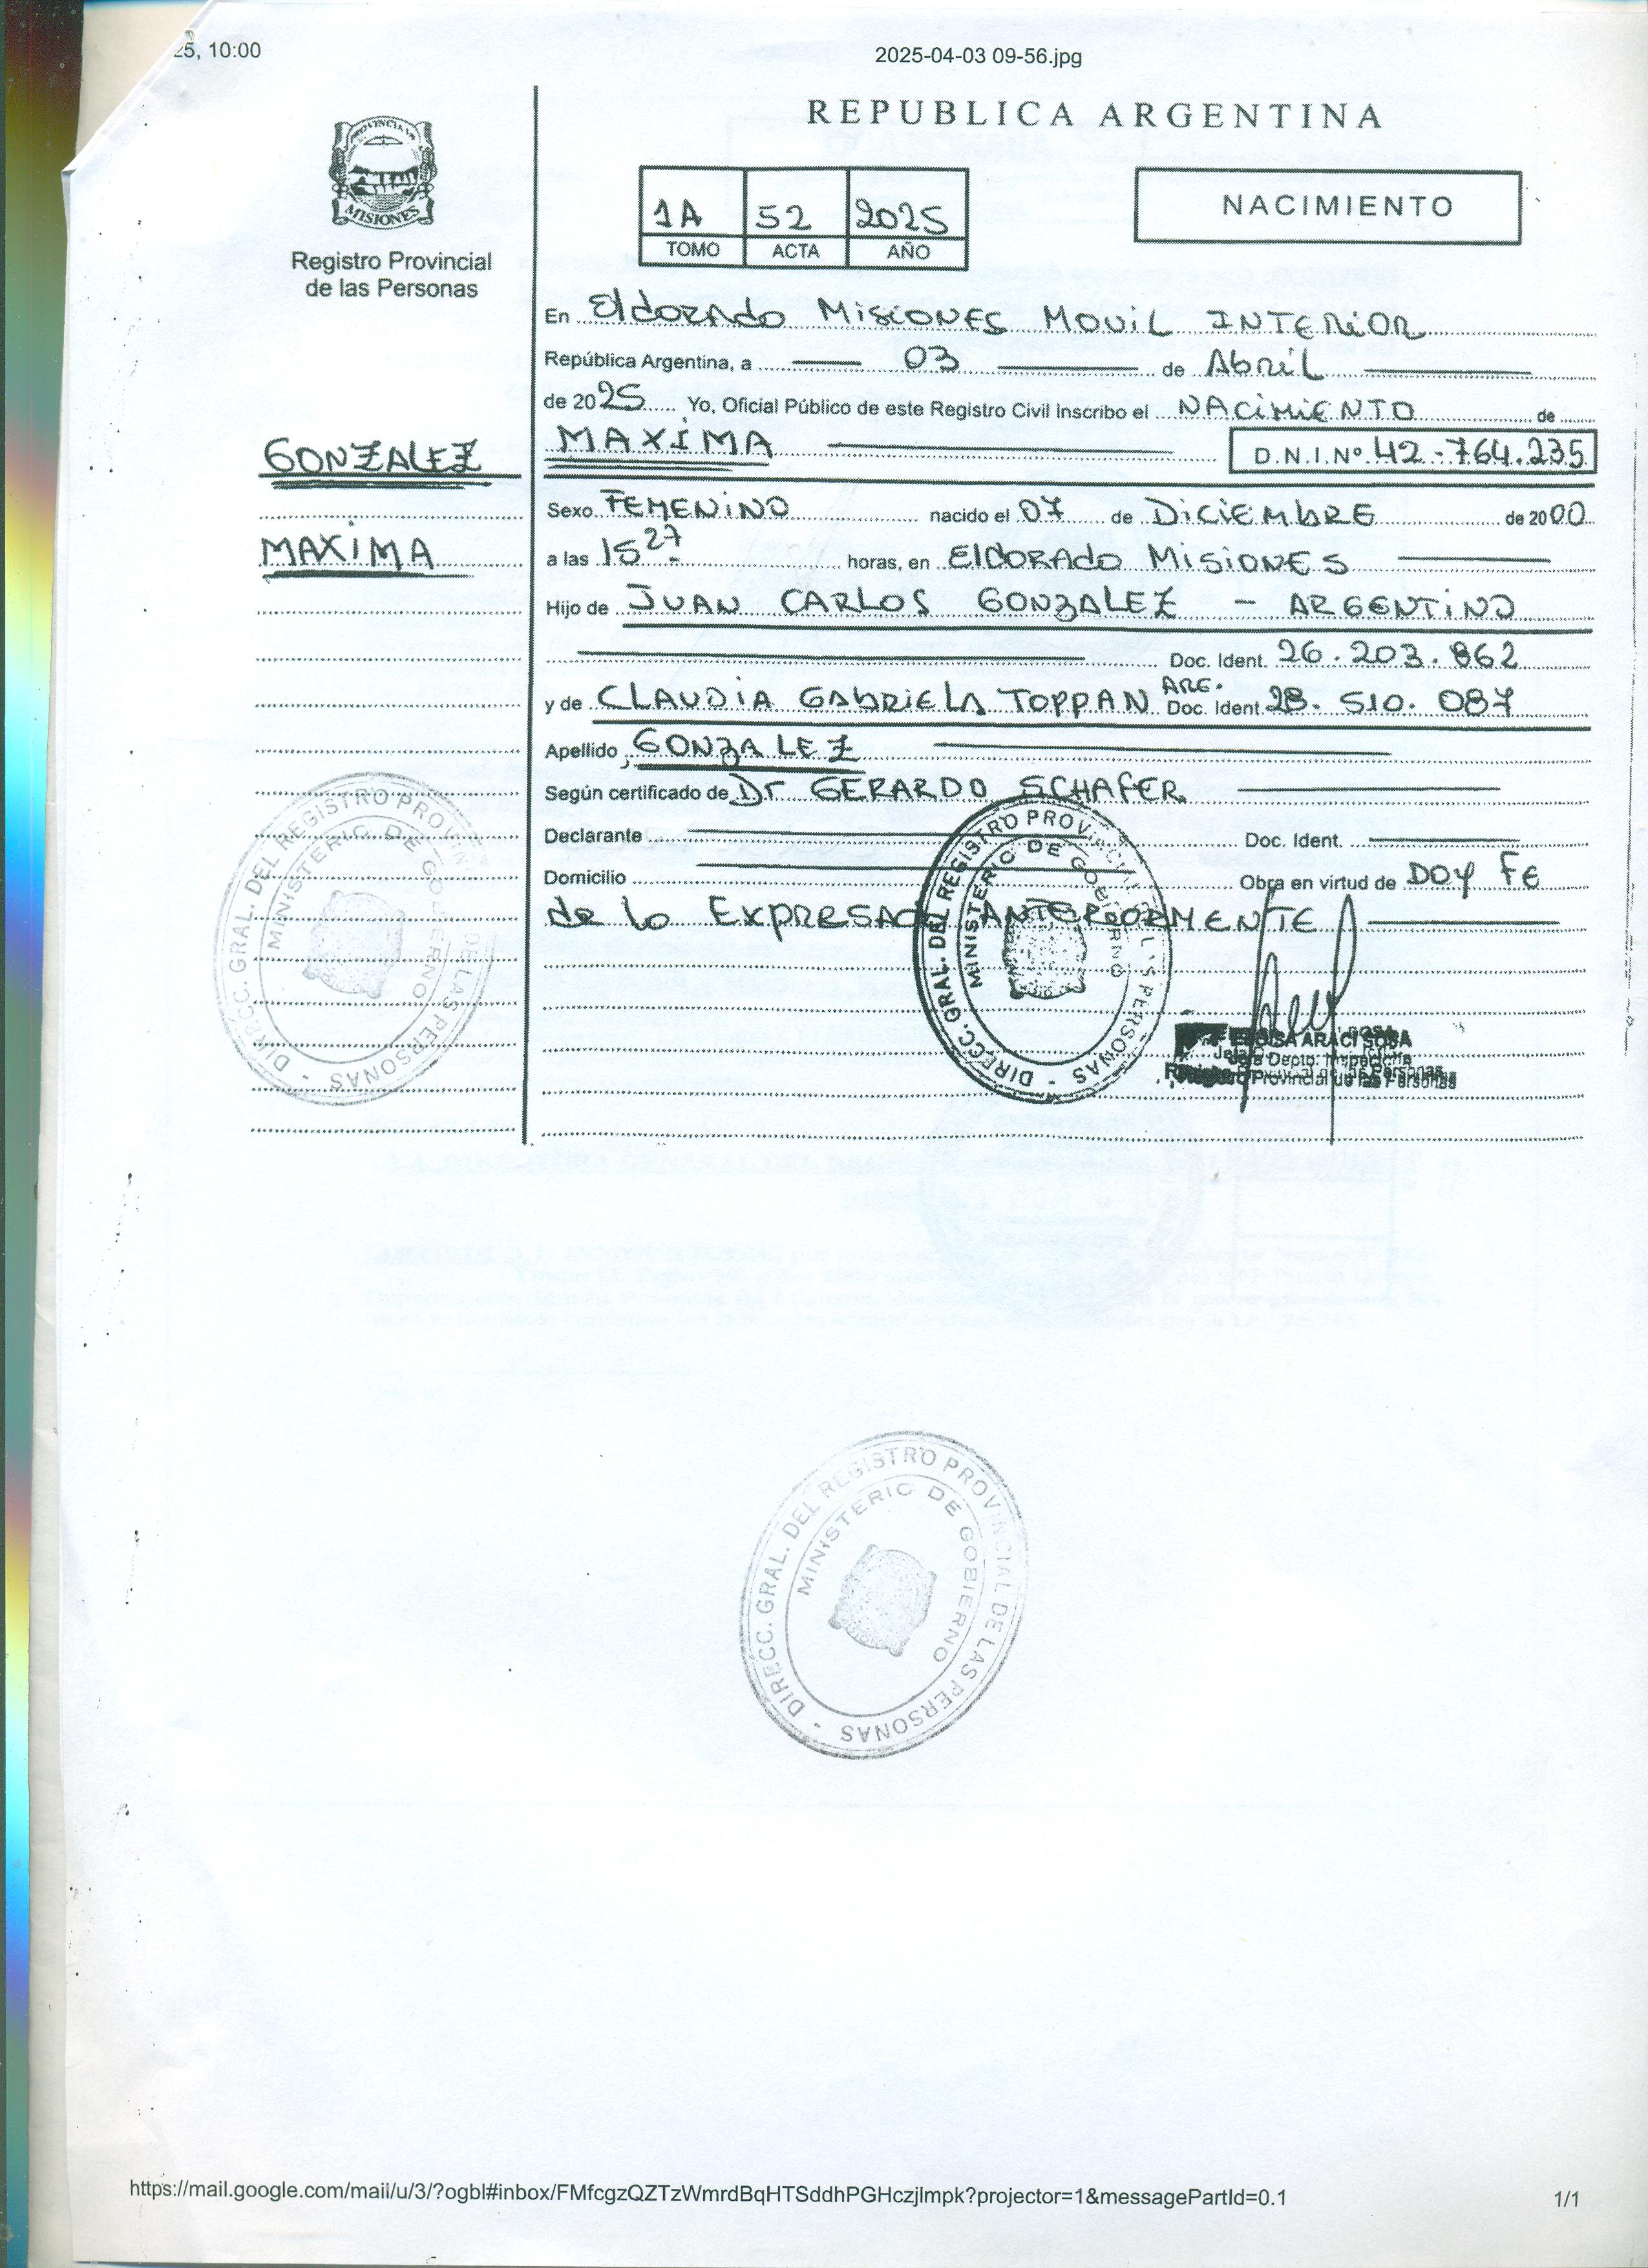 25, 10:00
2025-04-03 09-56.jpg
REPUBLICA ARGENTINA
PROVINCIA DE
MISIONES
Registro Provincial
de las Personas
1A 52 2025
TOMO ACTA AÑO
NACIMIENTO
En Eldorado Misiones Movil Interior
República Argentina, a 03 de Abril
de 2025 Yo, Oficial Público de este Registro Civil Inscribo el NACIMIENTO de
GONZALEZ
MAXIMA D.N.I.Nº 42-764.235
MAXIMA
Sexo FEMENINO nacido el 07 de DICIEMBRE de 2000
a las 15 27 horas, en Eldorado Misiones
Hijo de JUAN CARLOS GONZALEZ - ARGENTINO
Doc. Ident. 26.203.862
y de CLAUDIA GABRIELA TOPPAN ARG. Doc. Ident 28.510.087
Apellido GONZALEZ
Según certificado de Dr GERARDO SCHAFER
Declarante Doc. Ident.
Domicilio Obra en virtud de DOY FE
de lo EXPRESADO ANTERIORMENTE
DIRECC. GRAL. DEL REGISTRO PROVINCIAL DE LAS PERSONAS -
MINISTERIO DE GOBIERNO
DIRECC. GRAL. DEL REGISTRO PROVINCIAL DE LAS PERSONAS -
MINISTERIO DE GOBIERNO
ELOISA ARACI SOSA
Jefa Depto. Inspección
Registro Provincial de las Personas
DIRECC. GRAL. DEL REGISTRO PROVINCIAL DE LAS PERSONAS -
MINISTERIO DE GOBIERNO
https://mail.google.com/mail/u/3/?ogbl#inbox/FMfcgzQZTzWmrdBqHTSddhPGHczjlmpk?projector=1&messagePartId=0.1
1/1